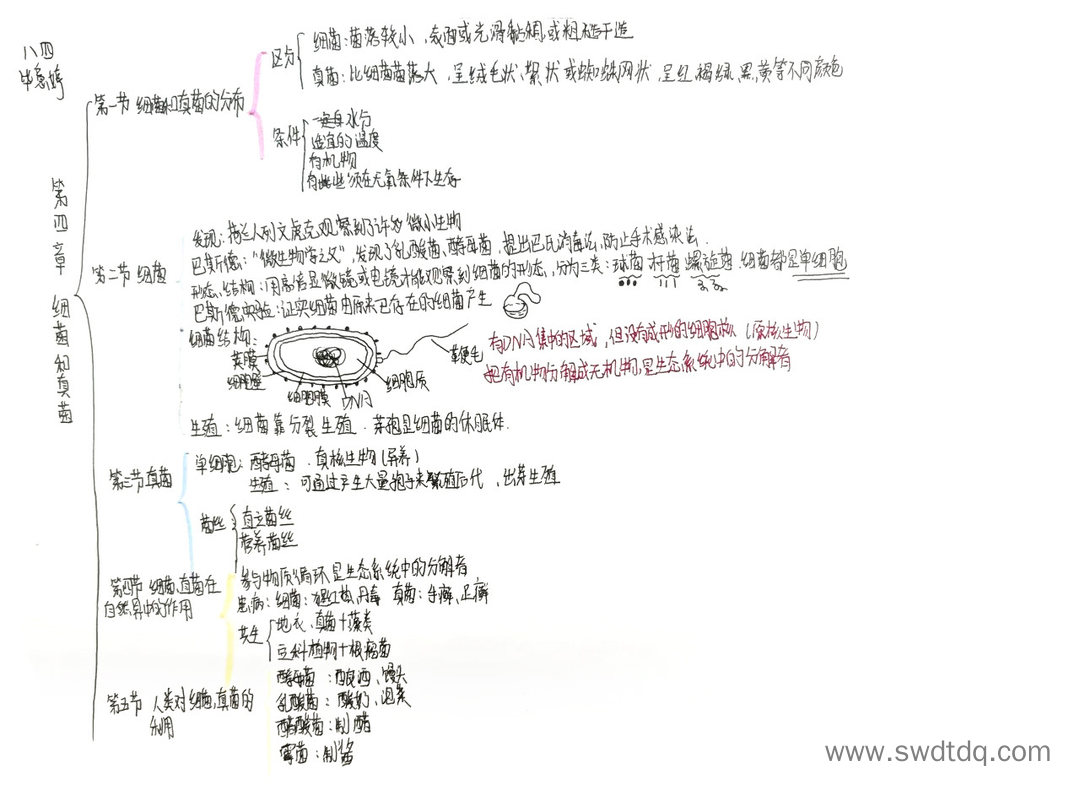 八四
第四章 细菌和真菌
第一节 细菌和真菌的分布
区分
细菌:菌落较小,表面或光滑黏稠,或粗糙干燥
真菌:比细菌菌落大,呈绒毛状、絮状或蜘蛛网状,呈红、褐、绿、黑、黄等不同颜色
条件
一定的水分
适宜的温度
有机物
有些必须在无氧条件下生存
第二节 细菌
发现:荷兰人列文虎克观察到了许多微小生物
巴斯德:“微生物学之父”,发现了乳酸菌、酵母菌,提出巴氏消毒法,防止手术感染法.
形态、结构:用高倍显微镜或电镜才能观察到细菌的形态,分为三类:球菌 杆菌 螺旋菌.细菌都是单细胞
巴斯德实验:证实细菌由原来已存在的细菌产生
细菌结构:
荚膜
细胞壁
细胞膜
DNA
细胞质
鞭毛
有DNA集中的区域,但没有成形的细胞核(原核生物)
把有机物分解成无机物,是生态系统中的分解者
生殖:细菌靠分裂生殖.芽孢是细菌的休眠体.
第三节 真菌
单细胞:酵母菌.真核生物(异养)
生殖:可通过产生大量孢子来繁殖后代,出芽生殖
菌丝
直立菌丝
营养菌丝
第四节 细菌、真菌在
自然界中的作用
参与物质循环是生态系统中的分解者
患病:细菌:猩红热、丹毒 真菌:手癣、足癣
共生
地衣,真菌+藻类
豆科植物+根瘤菌
第五节 人类对细菌,真菌的
利用
酵母菌:酿酒、馒头
乳酸菌:酸奶、泡菜
醋酸菌:制醋
霉菌:制酱
www.swdtdq.com